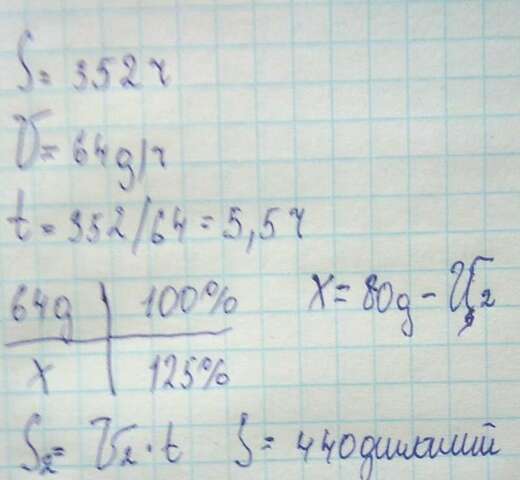 S = 352 ч
V = 64д/ч
t = 352/64 = 5,5 ч
64д | 100%
x | 125%
x = 80д - V₂
S₂ = V₂ · t S = 440